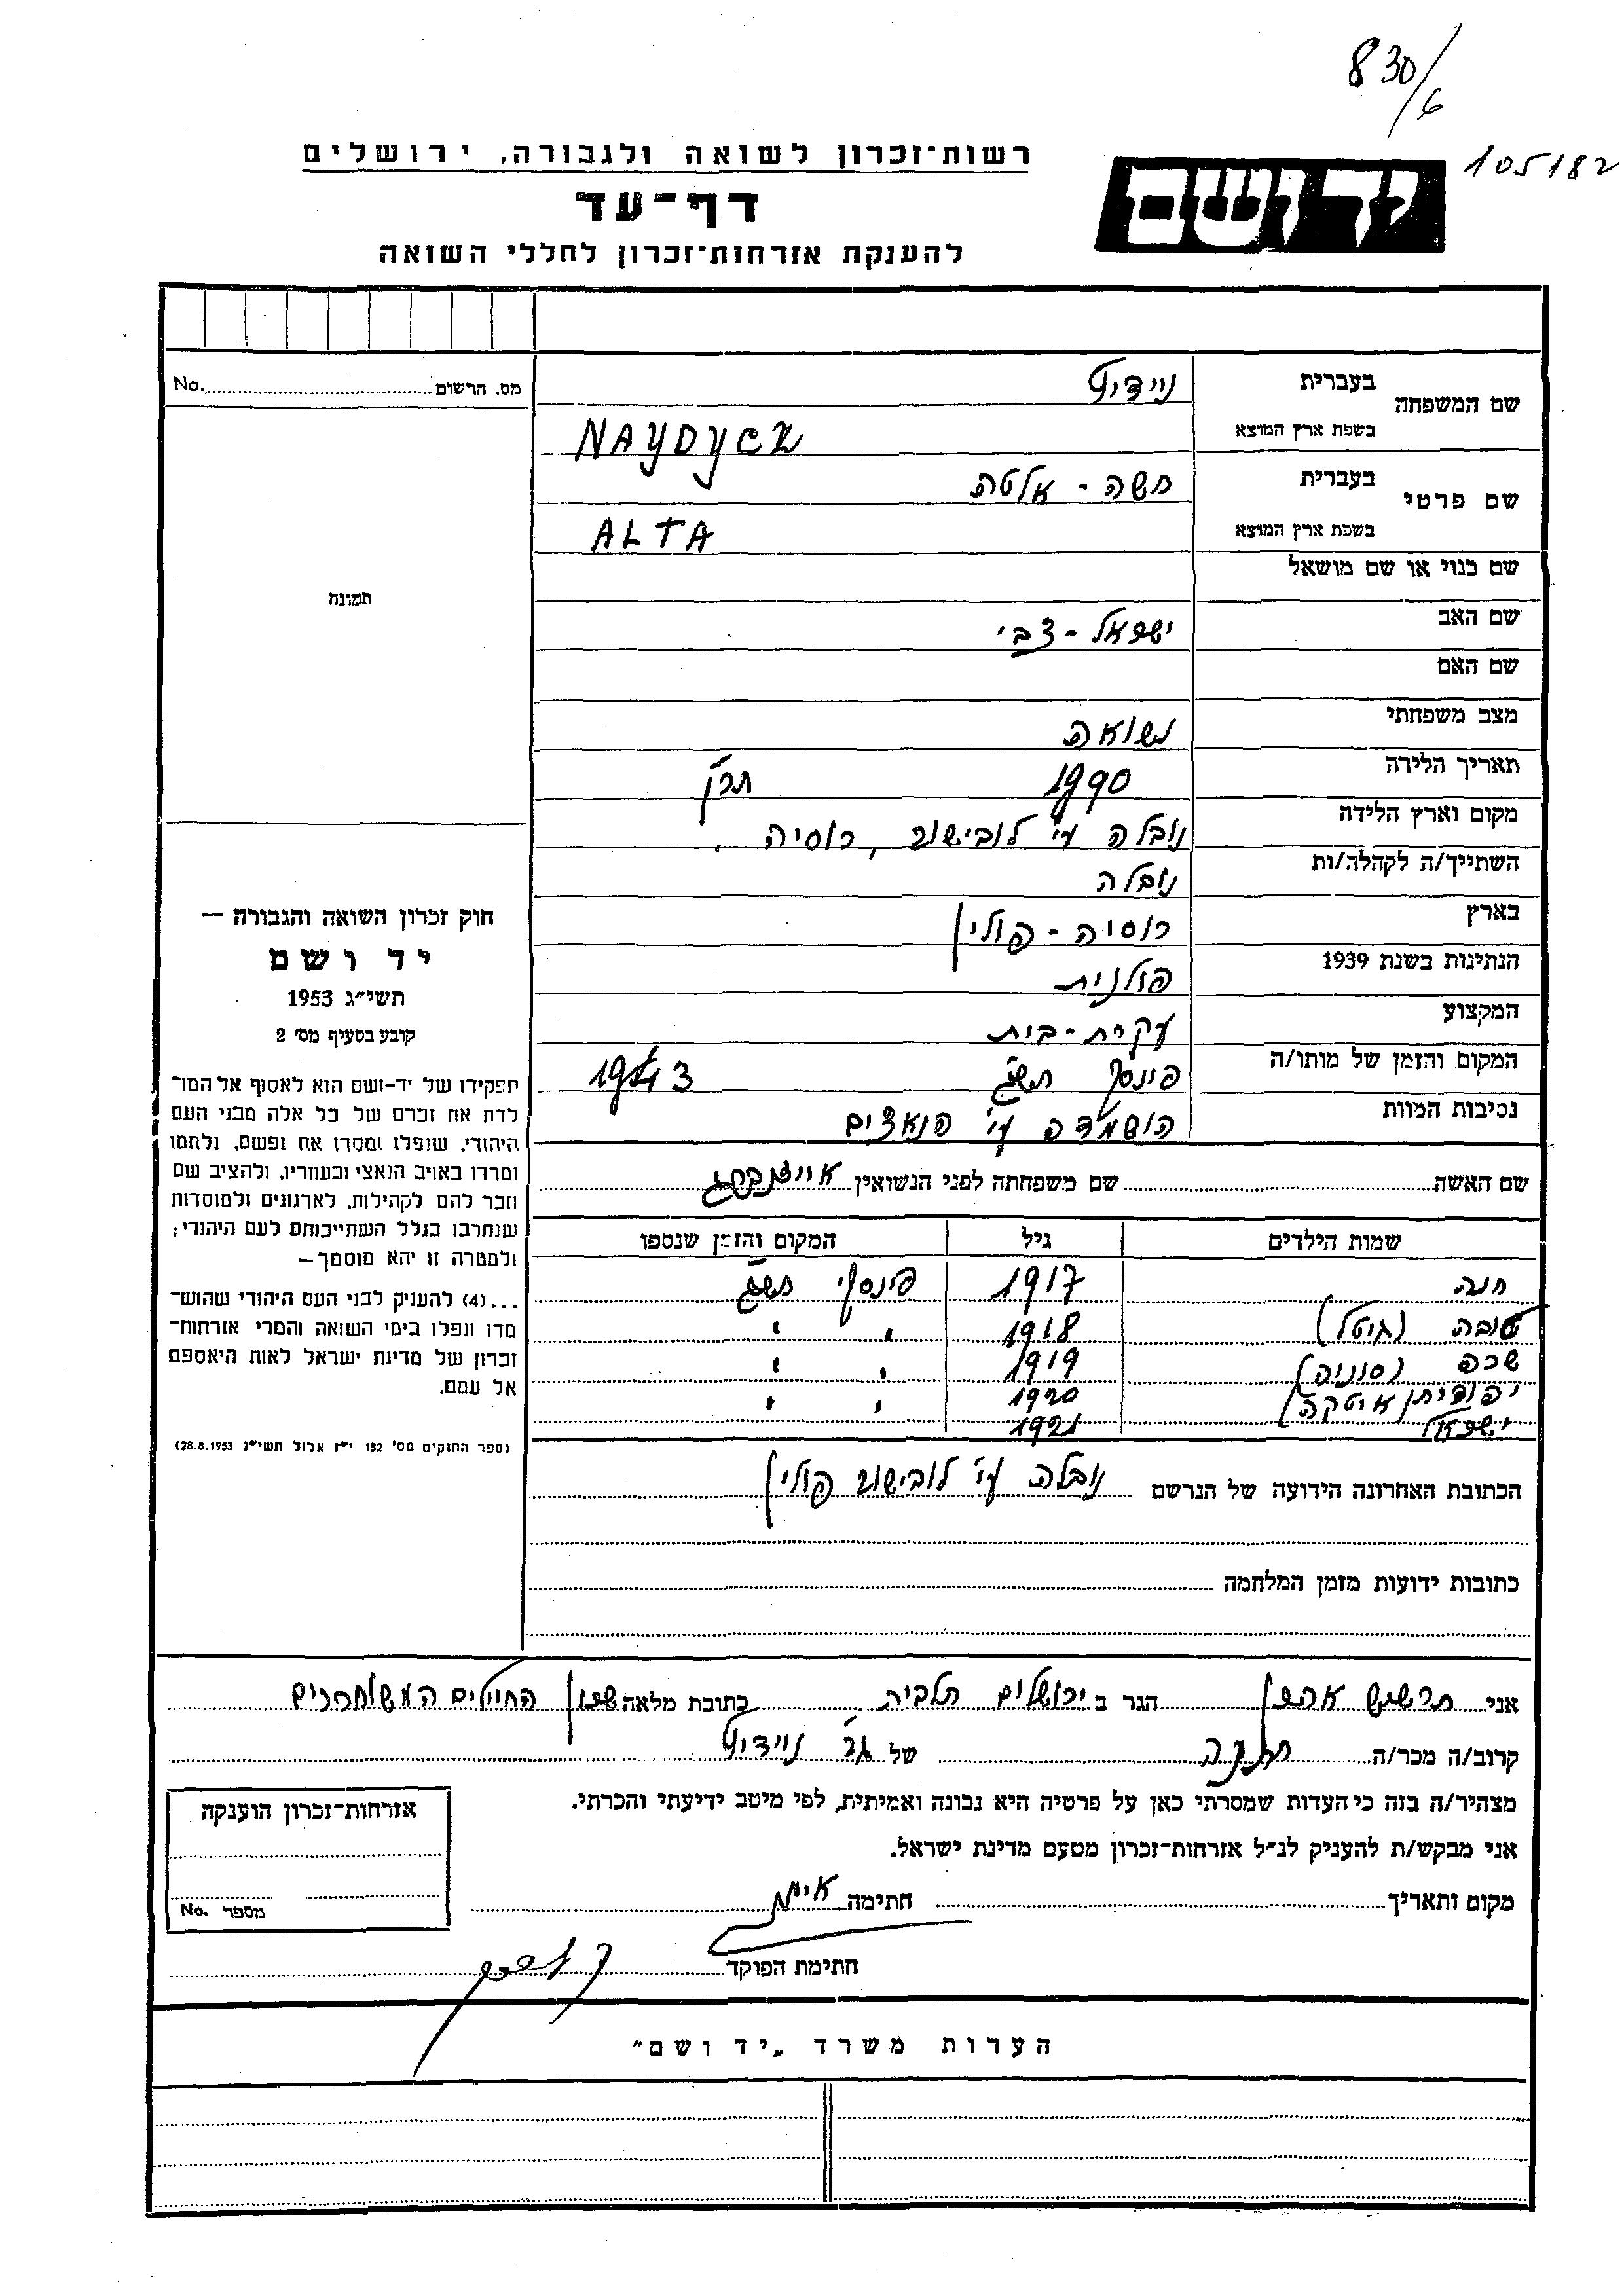 830/6
105182
רשות־זכרון לשואה ולגבורה, ירושלים
יד ושם
דף־עד
להענקת אזרחות־זכרון לחללי השואה
מס. הרשום No.
שם המשפחה בעברית ניידיץ
בשפת ארץ המוצא NAYDYCZ
שם פרטי בעברית חשה - אלטה
בשפת ארץ המוצא ALTA
תמונה
שם כנוי או שם מושאל
שם האב ישראל - צבי
שם האם
מצב משפחתי נשואה
תאריך הלידה 1990 תר"ן
מקום וארץ הלידה נובלה ע"י לובישוב, רוסיה.
השתייך/ה לקהלה/ות נובלה
בארץ רוסיה - פולין
הנתינות בשנת 1939 פולנית
המקצוע עקרת-בית
המקום והזמן של מותו/ה פינסק תש"ג 1943
נסיבות המוות הושמדה ע"י הנאצים
שם האשה שם משפחתה לפני הנשואין אייזנברג
שמות הילדים גיל המקום והזמן שנספו
חנה 1917 פינסק תש"ג
טובה (גיטל) 1918 " "
שרה (סוניה) 1919 " "
יהודית (איטקה) 1920 " "
ישראל 1921
הכתובת האחרונה הידועה של הנרשם נובלה ע"י לובישוב פולין
כתובות ידועות מזמן המלחמה
חוק זכרון השואה והגבורה —
יד ושם
תשי״ג 1953
קובע בסעיף מס׳ 2
תפקידו של יד-ושם הוא לאסוף אל המו־
לדת את זכרם של כל אלה מבני העם
היהודי, שנפלו ומסרו את נפשם, נלחמו
ומרדו באויב הנאצי ובעוזריו, ולהציב שם
וזכר להם לקהילות, לארגונים ולמוסדות
שנחרבו בגלל השתייכותם לעם היהודי;
ולמטרה זו יהא מוסמך —
...(4) להעניק לבני העם היהודי שהוש־
מדו ונפלו בימי השואה והמרי אזרחות־
זכרון של מדינת ישראל לאות היאספם
אל עמם.
(ספר החוקים מס׳ 132 י״ז אלול תשי״ג 28.8.1953)
אני אהרן הגר ב ירושלים תלביה כתובת מלאה החיילים המשוחררים
קרוב/ה מכר/ה של גב' ניידיץ
מצהיר/ה בזה כי העדות שמסרתי כאן על פרטיה היא נכונה ואמיתית, לפי מיטב ידיעתי והכרתי.
אני מבקש/ת להעניק לנ״ל אזרחות־זכרון מטעם מדינת ישראל.
מקום ותאריך חתימה
חתימת הפוקד
אזרחות־זכרון הוענקה
מספר No.
הערות משרד „יד ושם"